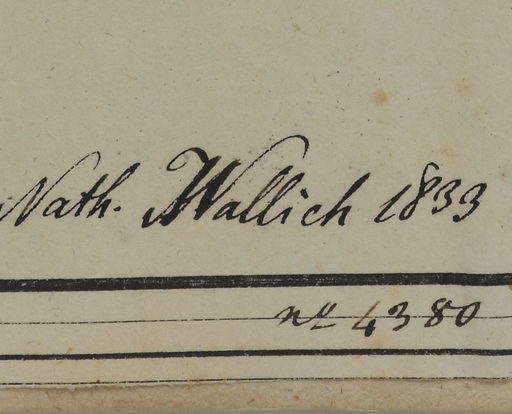 Nath. Wallich 1833
no 4380